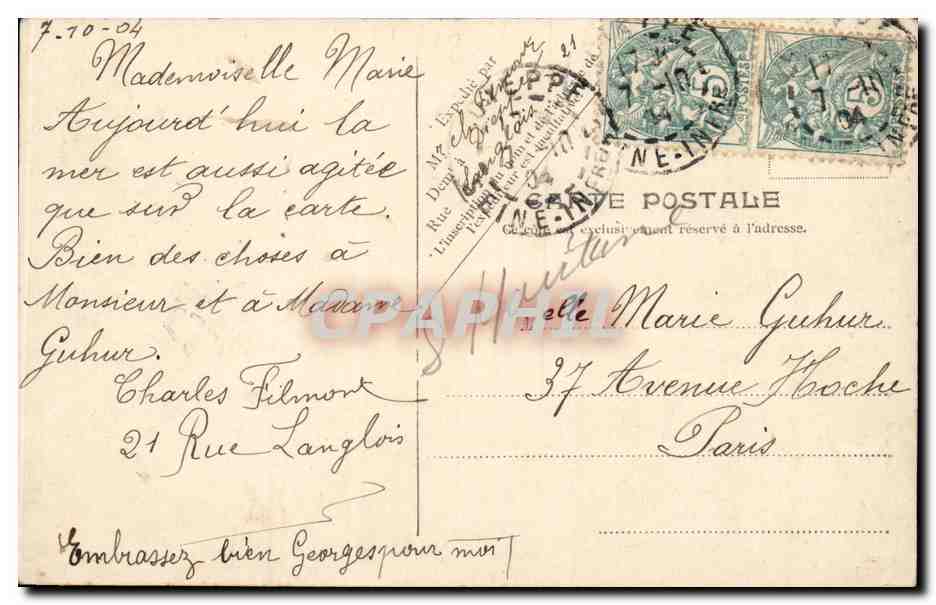 7-10-04
Mademoiselle Marie
Aujourd'hui la
mer est aussi agitée
que sur la carte.
Bien des choses à
Monsieur et à Madame
Guhur.
Charles Filmont
21 Rue Langlois
Embrassez bien Georges pour moi
Expédié par
Mr Ch
Demt à Dieppe
Rue Langlois 21
L'inscription du nom et de l'adresse de
l'expéditeur est facultative
DIEPPE
17 10 04
INE-INFRE
CARTE POSTALE
Ce côté est exclusivement réservé à l'adresse.
Melle Marie Guhur
37 Avenue Hoche
Paris
POSTES
5
CPAPHIL